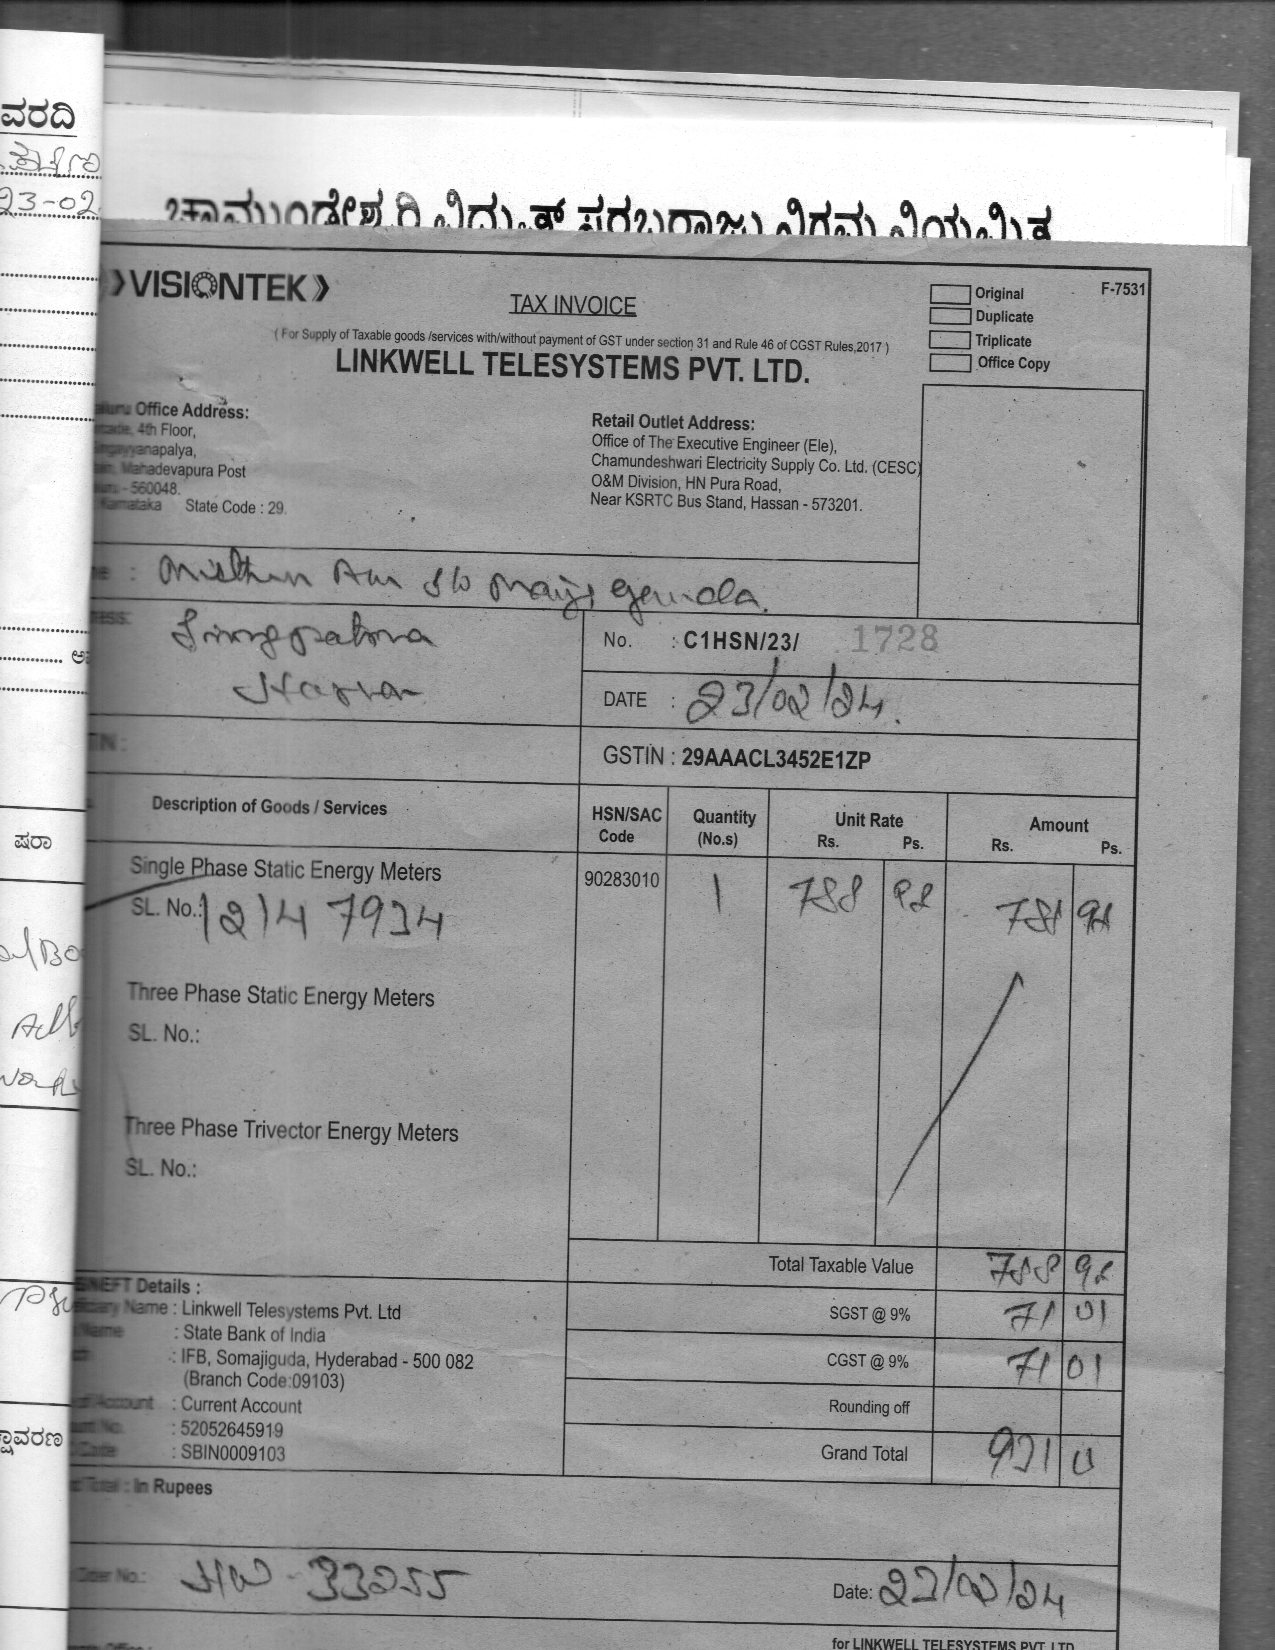 ವರದಿ
23-02
ಚಾಮುಂಡೇಶ್ವರಿ ವಿದ್ಯುತ್ ಸರಬರಾಜು ನಿಗಮ ನಿಯಮಿತ
VISIONTEK
TAX INVOICE
Original
F-7531
Duplicate
Triplicate
Office Copy
( For Supply of Taxable goods /services with/without payment of GST under section 31 and Rule 46 of CGST Rules,2017 )
LINKWELL TELESYSTEMS PVT. LTD.
Office Address:
4th Floor,
Mahadevapura Post
- 560048.
Karnataka State Code : 29.
Retail Outlet Address:
Office of The Executive Engineer (Ele),
Chamundeshwari Electricity Supply Co. Ltd. (CESC)
O&M Division, HN Pura Road,
Near KSRTC Bus Stand, Hassan - 573201.
No. : C1HSN/23/ 1728
DATE : 23/02/24.
GSTIN : 29AAACL3452E1ZP
Description of Goods / Services
HSN/SAC Code
Quantity (No.s)
Unit Rate
Rs. Ps.
Amount
Rs. Ps.
Single Phase Static Energy Meters
90283010 1 788 98 788 98
SL. No.: 12147934
Three Phase Static Energy Meters
SL. No.:
Three Phase Trivector Energy Meters
SL. No.:
Total Taxable Value 788 98
SGST @ 9% 71 01
CGST @ 9% 71 01
Rounding off
Grand Total 931 0
NEFT Details :
Name : Linkwell Telesystems Pvt. Ltd
Name : State Bank of India
: IFB, Somajiguda, Hyderabad - 500 082
(Branch Code:09103)
Account : Current Account
No. : 52052645919
Code : SBIN0009103
Total : In Rupees
Order No.: 33255
Date: 23/02/24
for LINKWELL TELESYSTEMS PVT. LTD
ಷರಾ